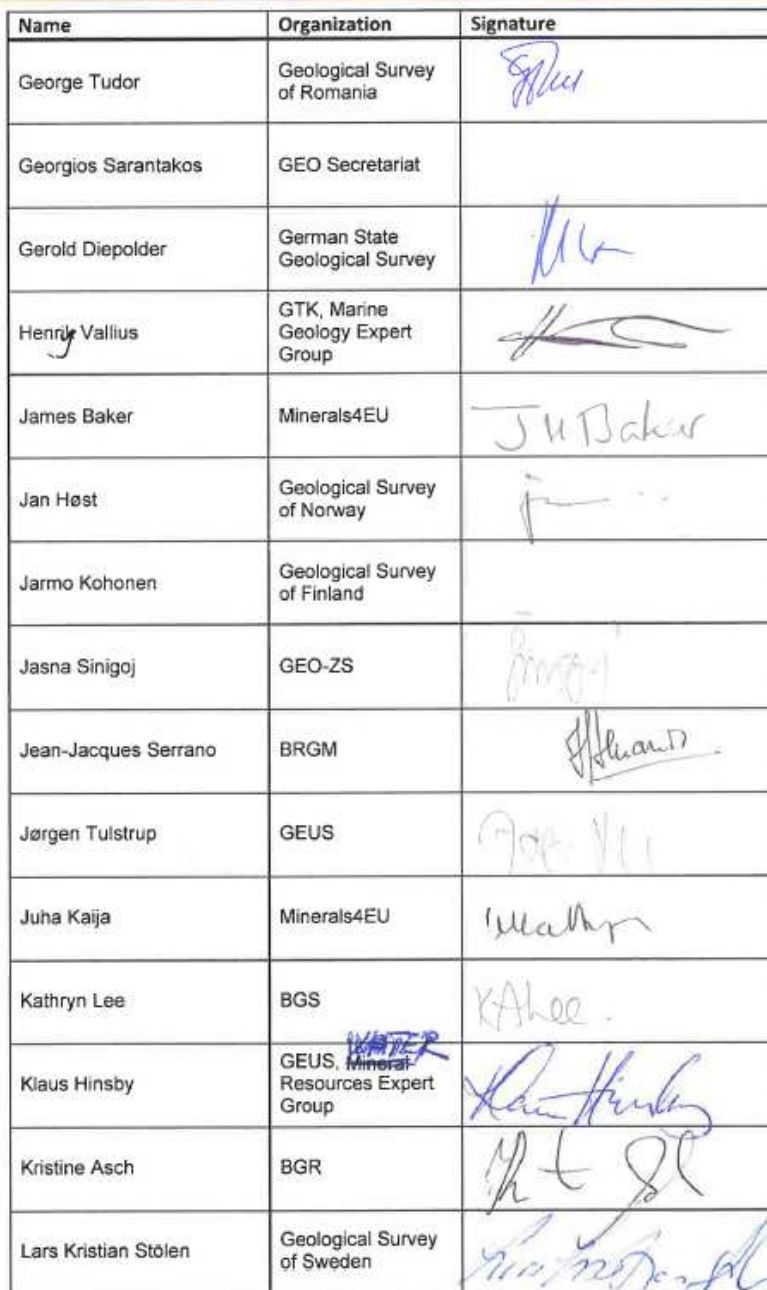 Name Organization Signature
George Tudor Geological Survey
of Romania
Georgios Sarantakos GEO Secretariat
Gerold Diepolder German State
Geological Survey
Henry Vallius GTK, Marine
Geology Expert
Group
James Baker Minerals4EU J H Baker
Jan Høst Geological Survey
of Norway
Jarmo Kohonen Geological Survey
of Finland
Jasna Sinigoj GEO-ZS
Jean-Jacques Serrano BRGM
Jørgen Tulstrup GEUS
Juha Kaija Minerals4EU
Kathryn Lee BGS KALee.
WATER
Klaus Hinsby GEUS, Mineral Klaus Hinsby
Resources Expert
Group
Kristine Asch BGR
Lars Kristian Stölen Geological Survey
of Sweden